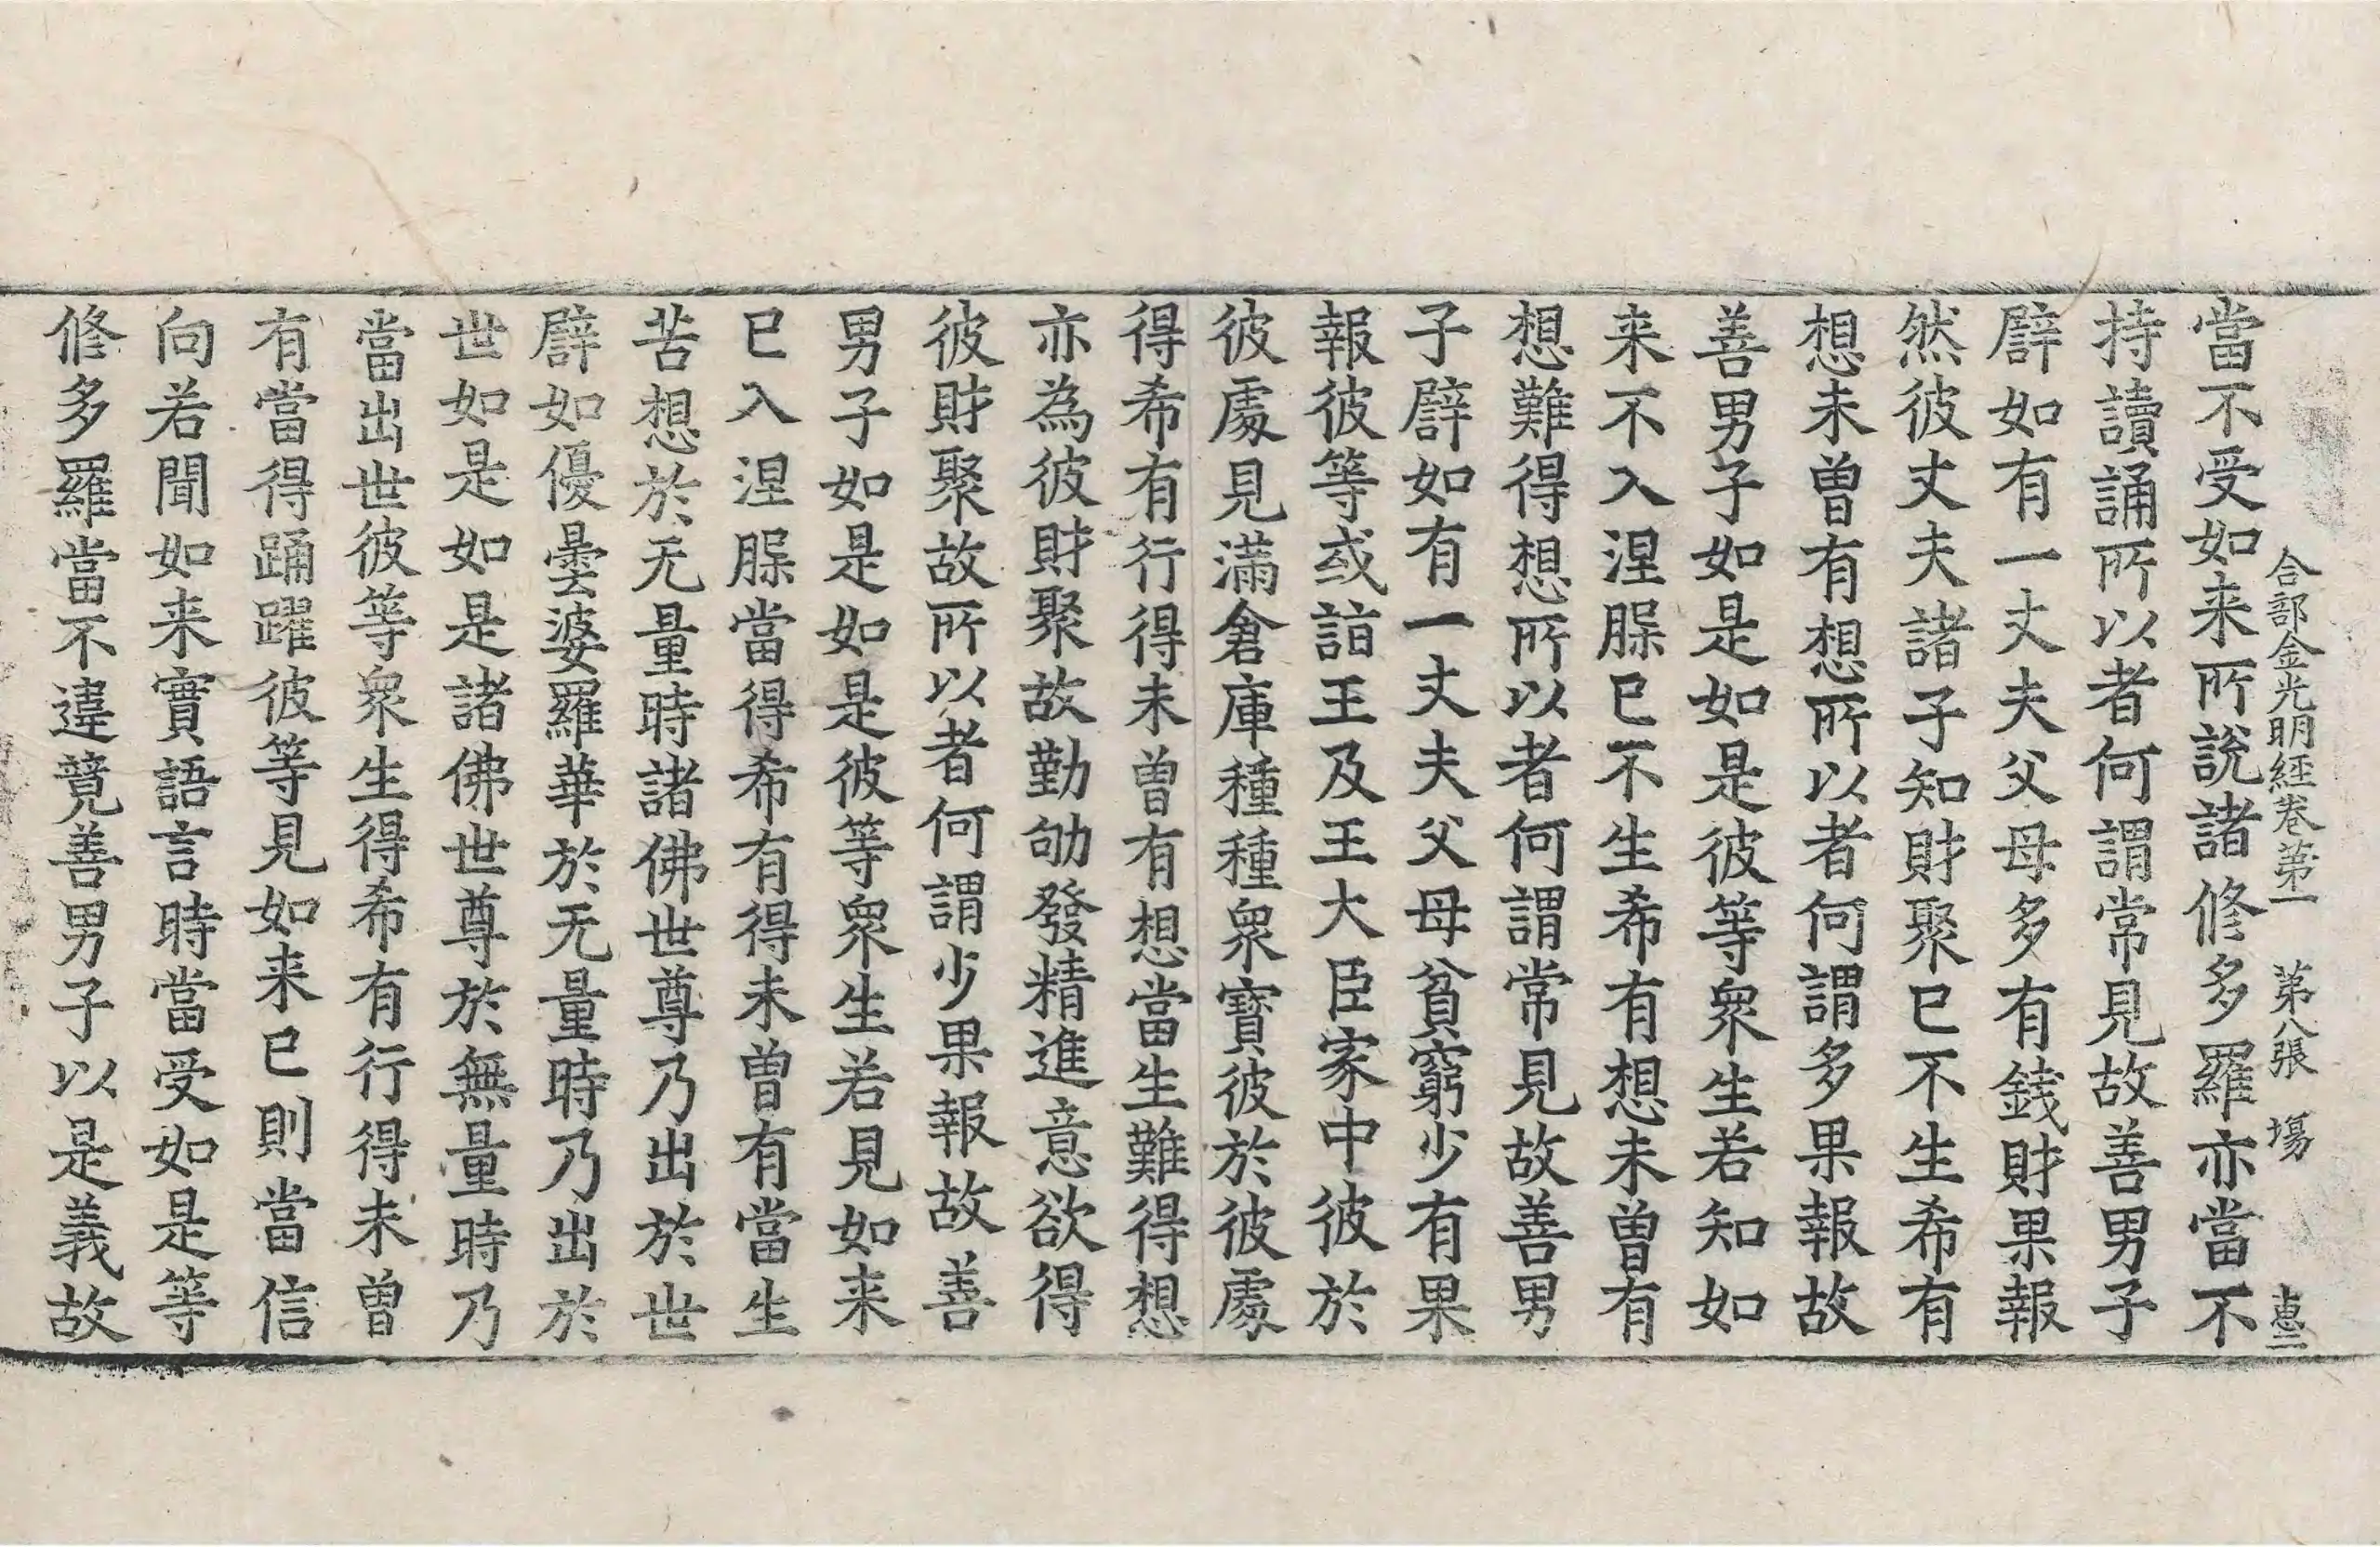 合部金光明經卷第一　第八張　場　惪二
當不受如来所說諸修多羅亦當不
持讀誦所以者何謂常見故善男子
譬如有一丈夫父母多有錢財果報
然彼丈夫諸子知財聚已不生希有
想未曾有想所以者何謂多果報故
善男子如是如是彼等衆生若知如
来不入涅脲已不生希有想未曾有
想難得想所以者何謂常見故善男
子譬如有一丈夫父母貧窮少有果
報彼等或詣王及王大臣家中彼於
彼處見滿倉庫種種衆寶彼於彼處
得希有行得未曾有想當生難得想
亦為彼財聚故勤劬發精進意欲得
彼財聚故所以者何謂少果報故善
男子如是如是彼等衆生若見如来
已入涅脲當得希有得未曾有當生
苦想於无量時諸佛世尊乃出於世
譬如優曇婆羅華於无量時乃出於
世如是如是諸佛世尊於無量時乃
當出世彼等衆生得希有行得未曾
有當得踊躍彼等見如来已則當信
向若聞如来實語言時當受如是等
修多羅當不違競善男子以是義故